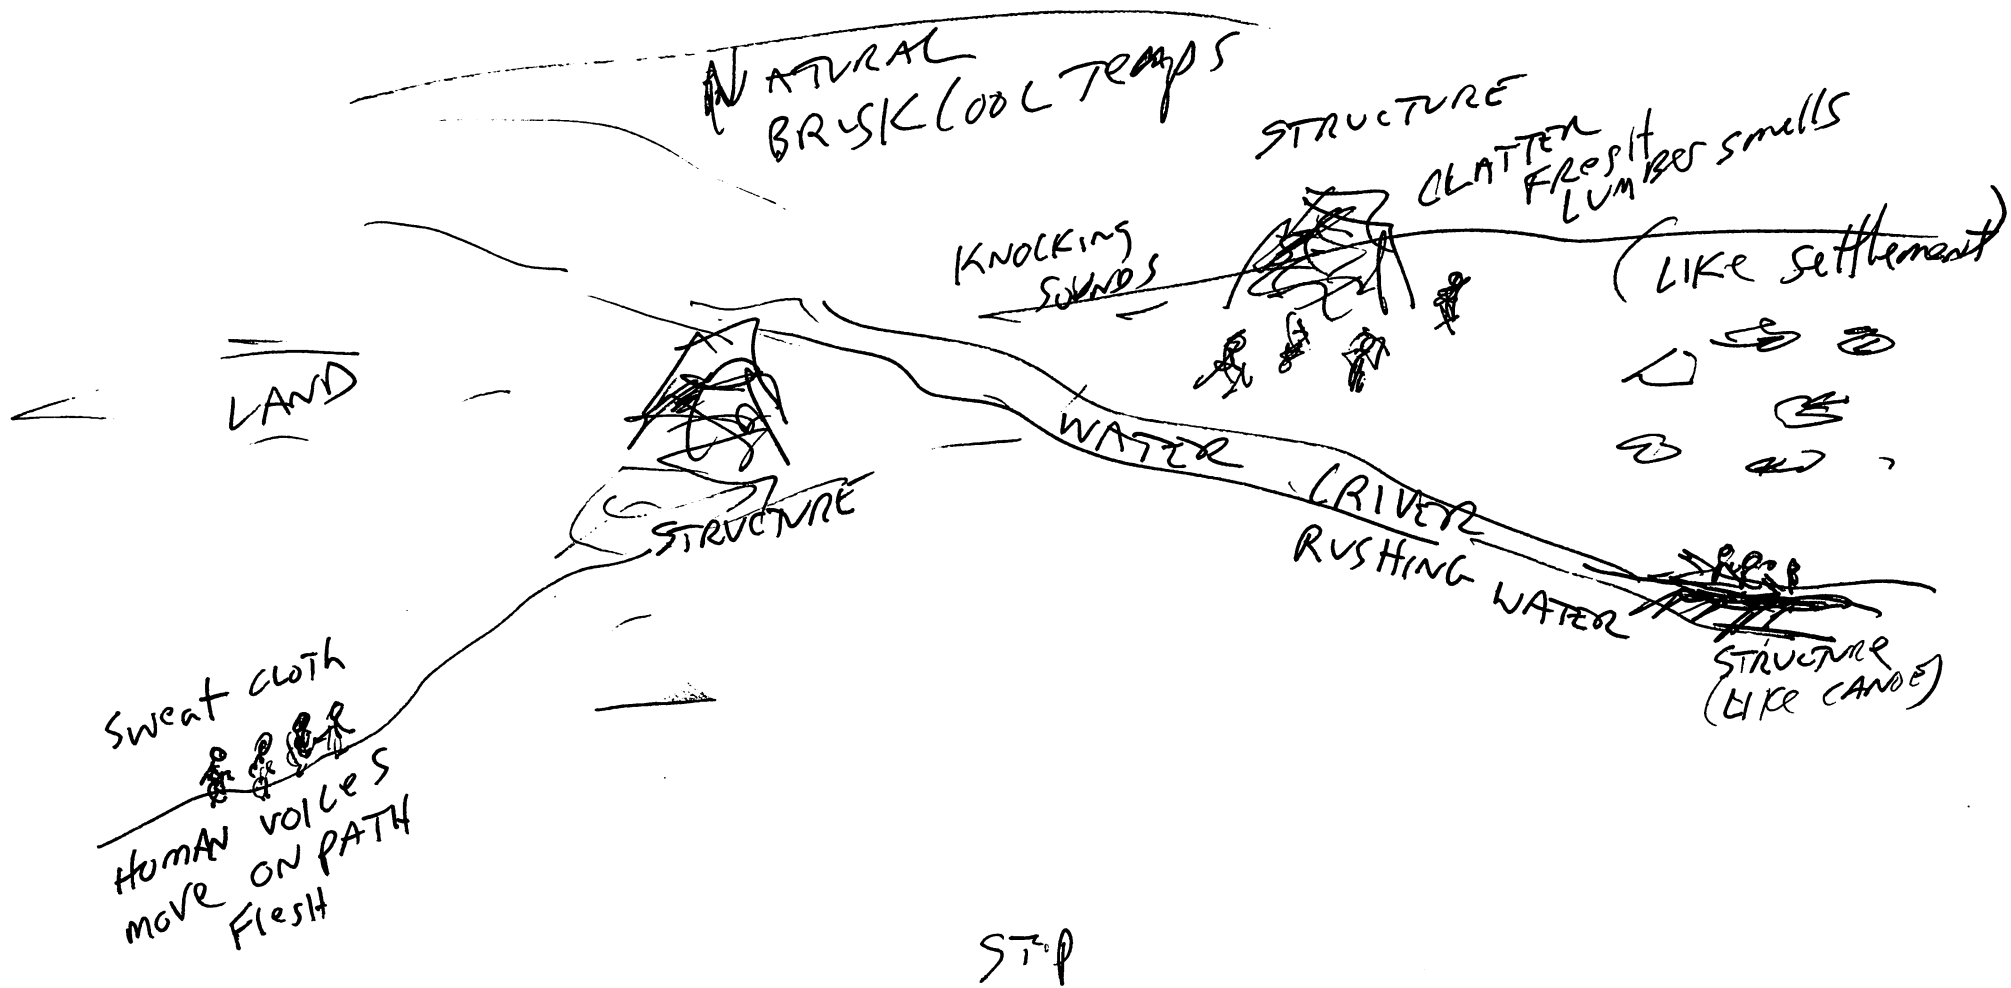 NATURAL
BRISK COOL TEMPS
STRUCTURE
CLATTER
FRESH
LUMBER smells
(LIKE settlement)
KNOCKING
SOUNDS
LAND
STRUCTURE
WATER
(RIVER
RUSHING WATER
STRUCTURE
(LIKE CANOE)
Sweat CLOTH
HUMAN VOICES
MOVE ON PATH
FLESH
STOP